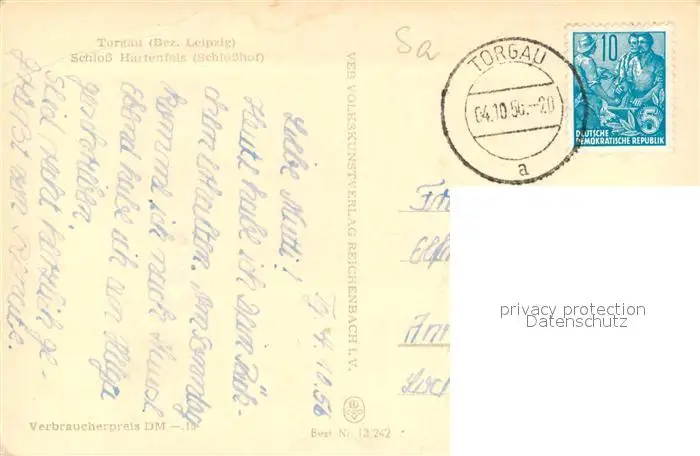 Torgau (Bez. Leipzig)
Schloß Hartenfels (Schloßhof)
Sa
TORGAU
04.10.56.-20
a
10
DEUTSCHE
DEMOKRATISCHE REPUBLIK
5
VEB VOLKSKUNSTVERLAG REICHENBACH I. V.
Tg. 4.10.56
Liebe Mutti!
Heute habe ich Dein Päck-
chen erhalten. Am Sonntag
komme ich nach Hause
Ebend habe ich an Helga
geschrieben.
Seid recht herzlich ge-
grüßt von Renate.
privacy protection
Datenschutz
Verbraucherpreis DM —.15
Best. Nr. 13/242